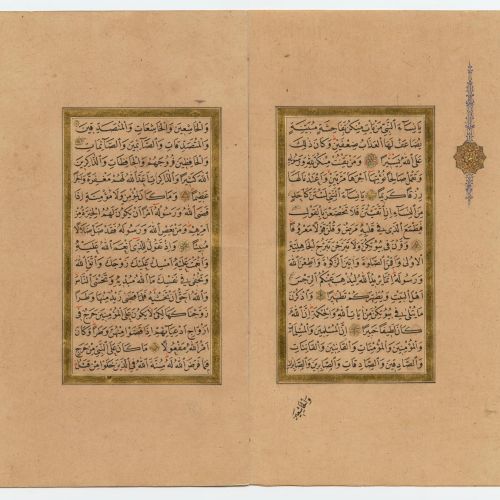 يا نساء النبي من يأت منكن بفاحشة مبينة
يضاعف لها العذاب ضعفين وكان ذلك
على الله يسيرا ومن يقنت منكن لله ورسوله
وتعمل صالحا نؤتها أجرها مرتين وأعتدنا لها
رزقا كريما يا نساء النبي لستن كأحد
من النساء إن اتقيتن فلا تخضعن بالقول
فيطمع الذي في قلبه مرض وقلن قولا معروفا
وقرن في بيوتكن ولا تبرجن تبرج الجاهلية
الأولى وأقمن الصلوة وآتين الزكوة وأطعن الله
ورسوله إنما يريد الله ليذهب عنكم الرجس
أهل البيت ويطهركم تطهيرا واذكرن
ما يتلى في بيوتكن من آيات الله والحكمة إن الله
كان لطيفا خبيرا إن المسلمين والمسلمات
والمؤمنين والمؤمنات والقانتين والقانتات
والصادقين والصادقات والصابرين والصابرات
والخاشعين
والخاشعين والخاشعات والمتصدقين
والمتصدقات والصائمين والصائمات
والحافظين فروجهم والحافظات والذاكرين
الله كثيرا والذاكرات أعد الله لهم مغفرة وأجرا
عظيما وما كان لمؤمن ولا مؤمنة إذا
قضى الله ورسوله أمرا أن يكون لهم الخيرة من
أمرهم ومن يعص الله ورسوله فقد ضل ضلالا
مبينا وإذ تقول للذي أنعم الله عليه
وأنعمت عليه أمسك عليك زوجك واتق الله
وتخفي في نفسك ما الله مبديه وتخشى الناس
والله أحق أن تخشاه فلما قضى زيد منها وطرا
زوجناكها لكي لا يكون على المؤمنين حرج في
أزواج أدعيائهم إذا قضوا منهن وطرا وكان
أمر الله مفعولا ما كان على النبي من حرج
فيما فرض الله له سنة الله في الذين خلوا من قبل